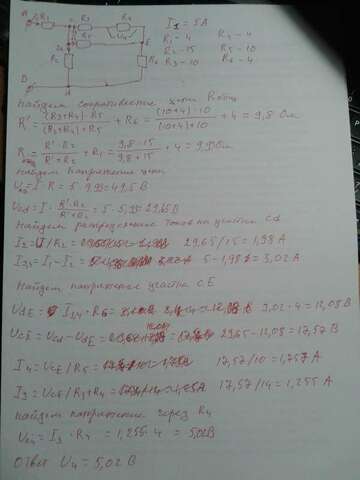 A R1 R3 R4 I1 = 5A
C R5 U4 R1 - 4 R4 - 4
R2 E R2 - 15 R5 - 10
R6 R3 - 10 R6 - 4
B d
Найдем сопротивление
R' = (R3+R4)·R5 / (R3+R4)+R5 + R6 = (10+4)·10 / (10+4)+10 + 4 = 9,8 Ом
R = R'·R2 / R'+R2 + R1 = 9,8·15 / 9,8+15 + 4 = 9,93 Ом
Найдем напряжение
U = I·R = 5·9.93=49,5 В
Ucd = I· R'·R2 / R'+R2 = 5·5,93=29,65 В
Найдем распределение токов на участке cd
I2 = U/R2 = 29,65/15 = 1,98 А
= I1 - I2 = 5-1,98 = 3,02 А
Найдем напряжение участка CE
UdE = · R6 = 3,02·4 = 12,08 В
UcE = Ucd - UdE = 29,65-12,08 = 17,57 В
I4 = UcE / R5 = 17,57/10 = 1,757 А
I3 = UcE / R3+R4 = 17,57/14 = 1,255 А
Найдем напряжение через R4
= I3 · R4 = 1,255·4 = 5,02 В
Ответ U4 = 5,02 В